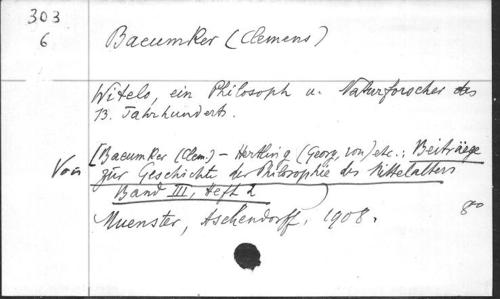 303
6
Baeumker (Clemens)
Witelo, ein Philosoph u. Naturforscher des
13. Jahrhunderts.
Von [Baeumker (Clem.) - Hertling (Georg von) etc.; Beiträege
zur Geschichte der Philosophie des Mittelalters
Band III, Heft 2
Muenster, Aschendorff, 1908.
8°